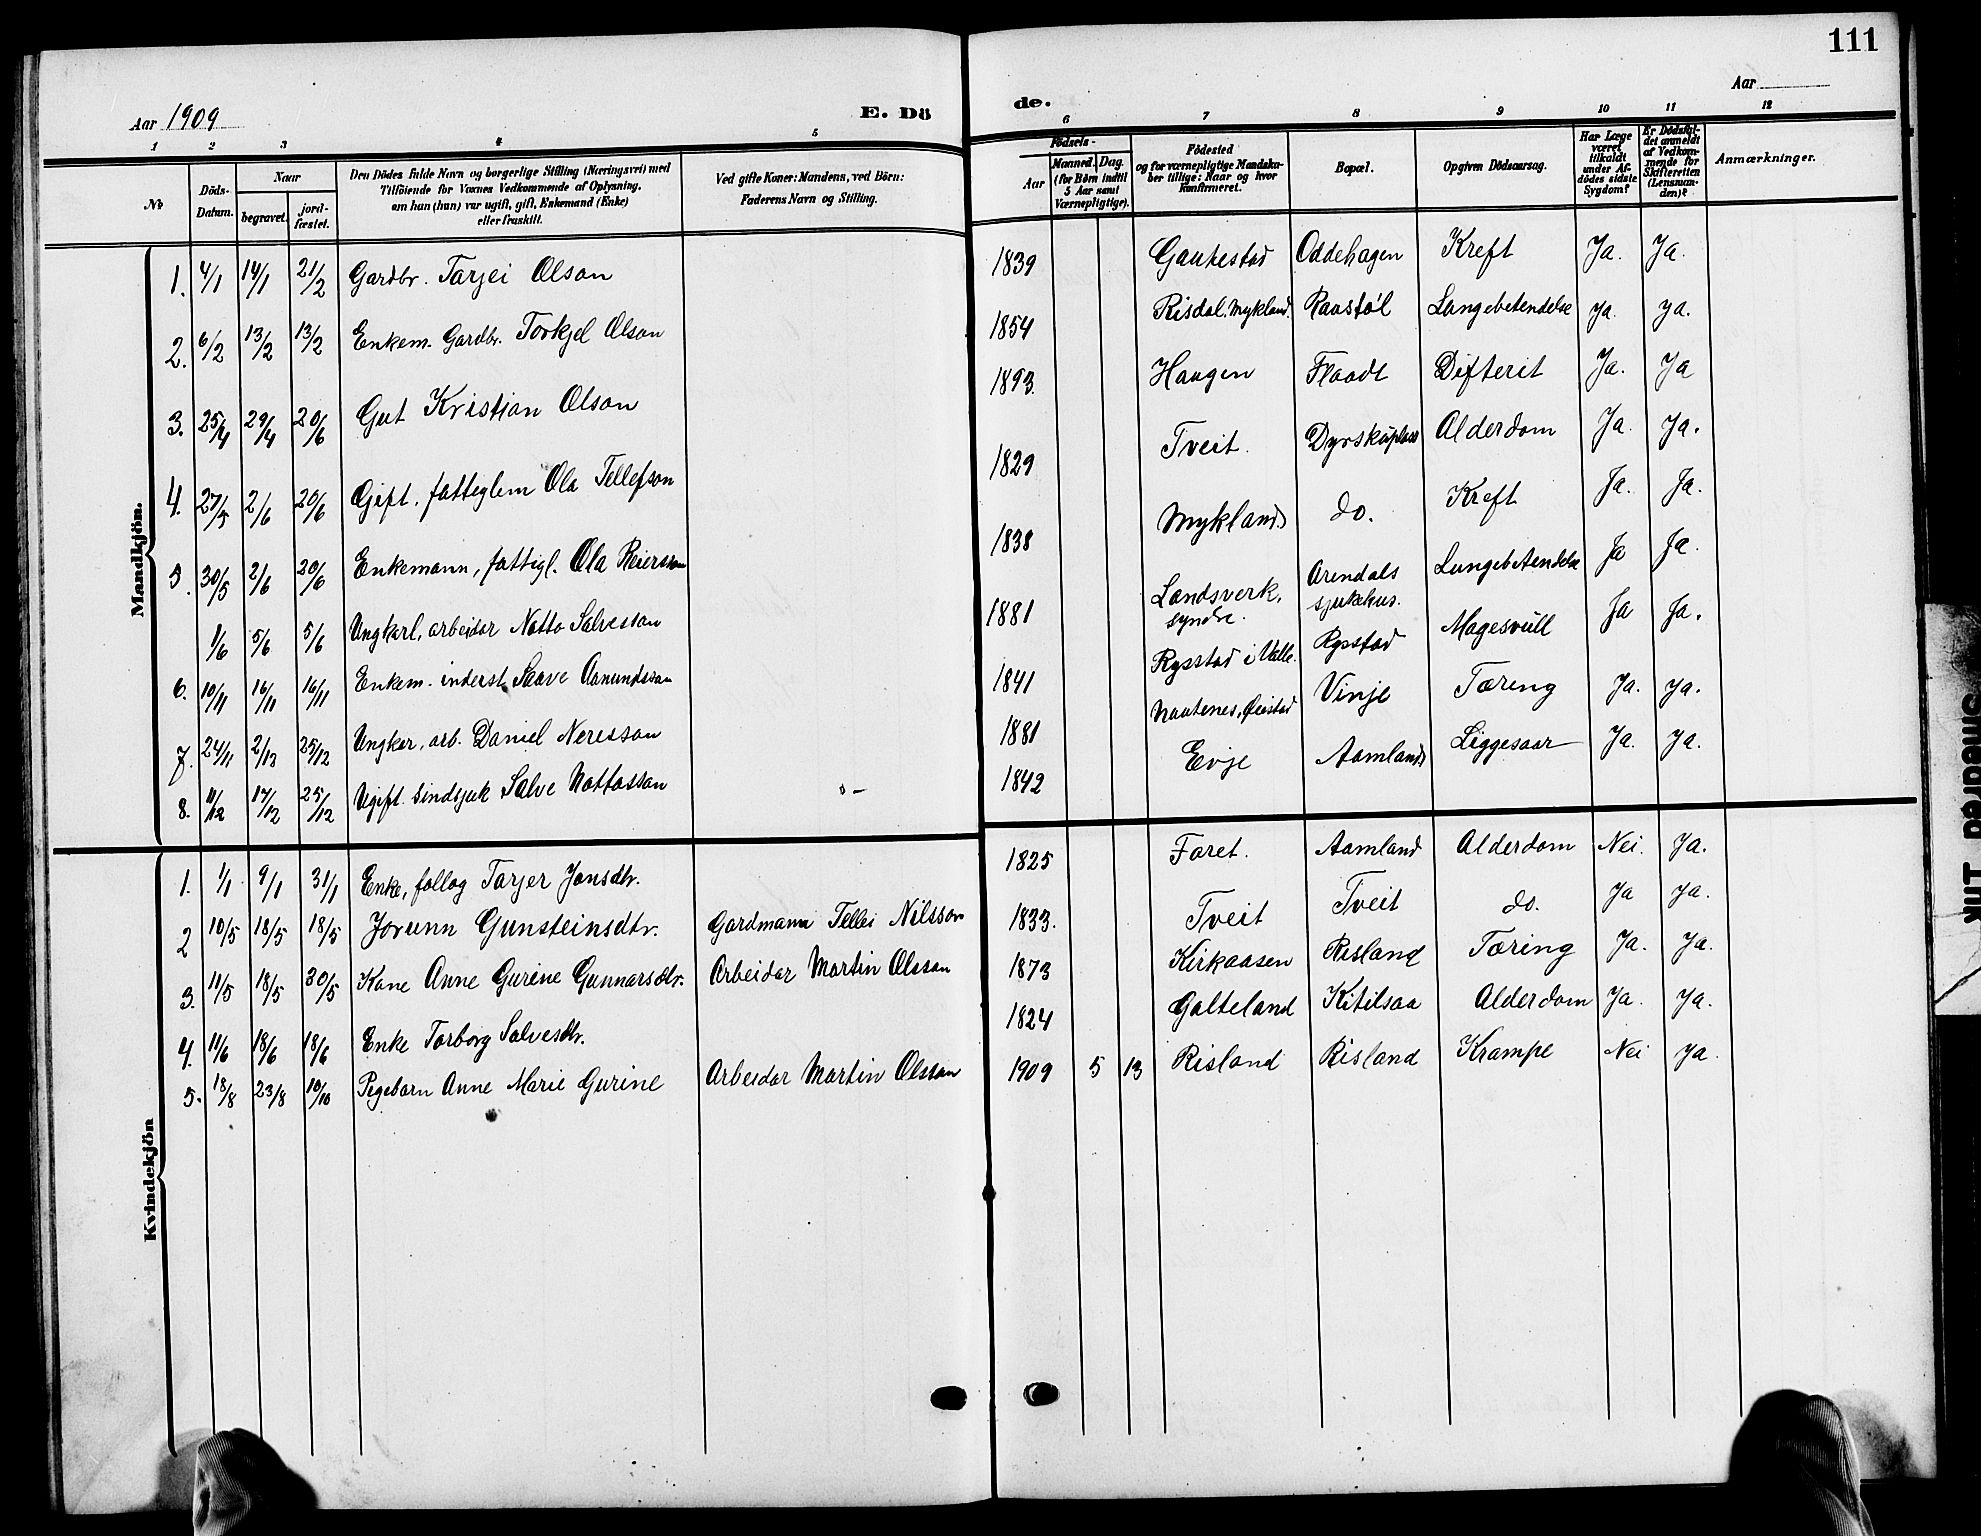 111
Aar 1909
E. Dö
de.
Aar
1 2 3 4 5 6 7 8 9 10 11 12
No
Döds-Datum.
Naar
begravet.
jord-fæstet.
Den Dödes fulde Navn og borgerlige Stilling (Næringsvei) med
Tilföiende for Voxnes Vedkommende af Oplysning,
om han (hun) var ugift, gift, Enkemand (Enke)
eller fraskilt.
Ved gifte Koner: Mandens, ved Börn:
Faderens Navn og Stilling.
Födsels-
Aar
Maaned. Dag.
(for Börn indtil
5 Aar samt
Værnepligtige).
Födested
og for værnepligtige Mandska-
ber tillige: Naar og hvor
konfirmeret.
Bopæl.
Opgiven Dödsaarsag.
Har Læge
været
tilkaldt
under Af-
dödes sidste
Sygdom?
Er Dödsfal-
det anmeldt
af Vedkom-
mende for
Skifteretten
(Lensman-
den)?
Anmærkninger.
Mandkjön.
1. 4/1 14/1 21/2 Gardbr. Tarjei Olson 1839 Gaukestad Oddehagen Kreft Ja. Ja.
2. 6/2 13/2 13/2 Enkem. Gardbr. Torkjel Olson 1854 Risdal, Mykland. Raastøl Lungebetendelse Ja. Ja.
3. 25/4 29/4 20/6 Gut Kristian Olson 1893. Haugen Flaadt Difterit Ja. Ja
4. 27/5 2/6 20/6 Gift. fatteglem Ola Tellefson 1829 Tveit. Dyrskåplass Alderdom Ja. Ja.
5. 30/5 2/6 20/6 Enkemann, fattigl. Ola Reiersson 1838 Mykland do. Kreft Ja. Ja.
1/6 5/6 5/6 Ungkarl, arbeidar Notto Salvesson 1881 Landsverk, syndre. Arendals sjukehus. Lungebetendelse Ja Ja.
6. 10/11 16/11 16/11 Enkem. inderst Saave Aanundsson 1841 Rysstad i Valle. Rysstad Magesvull Ja Ja.
7. 24/11 2/12 25/12 Ungkar, arb. Daniel Neresson 1881 Nautenes, Øiestad Vinje Tæring Ja. Ja.
8. 11/12 17/12 25/12 Ugift. sindsjuk Salve Nottosson 1842 Evje Aamland Liggesaar Ja. Ja.
Kvindekjön
1. 1/1 9/1 31/1 Enke, follog Tarjer Jonsdtr. 1825 Foret. Aamland Alderdom Nei. Ja.
2 10/5 18/5 18/5 Jorunn Gunsteinsdtr. Gardmann Tellei Nilsson 1833. Tveit Tveit do. Ja Ja.
3. 11/5 18/5 30/5 Kone Anne Gurine Gunnarsdtr. Arbeidar Martin Olsson 1873 Kirkaasen Risland Tæring Ja. Ja.
4. 11/6 18/6 18/6 Enke Torborg Salvesdtr. 1824 Galteland Kitilsaa Alderdom Ja. Ja.
5. 18/8 23/8 10/10 Pigebarn Anne Marie Gurine Arbeidar Martin Olsson 1909 5 13 Risland Risland Krampe Nei Ja.